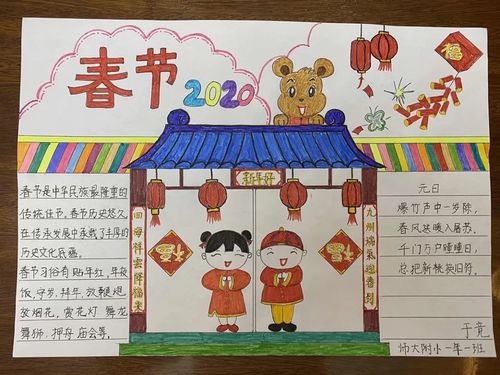 春节
2020
福
新年好
四海祥雲降福來
九州瑞氣迎春到
福
福
春节是中华民族最隆重的
传统佳节,春节历史悠久,
在传承发展中承载了丰厚的
历史文化底蕴。
春节习俗有贴年红,年夜
饭,守岁,拜年,放鞭炮
烟花,赏花灯 舞龙
舞狮,押舟 庙会等。
元日
爆竹声中一岁除,
春风送暖入屠苏。
千门万户曈曈日,
总把新桃换旧符。
于竟
师大附小一年一班